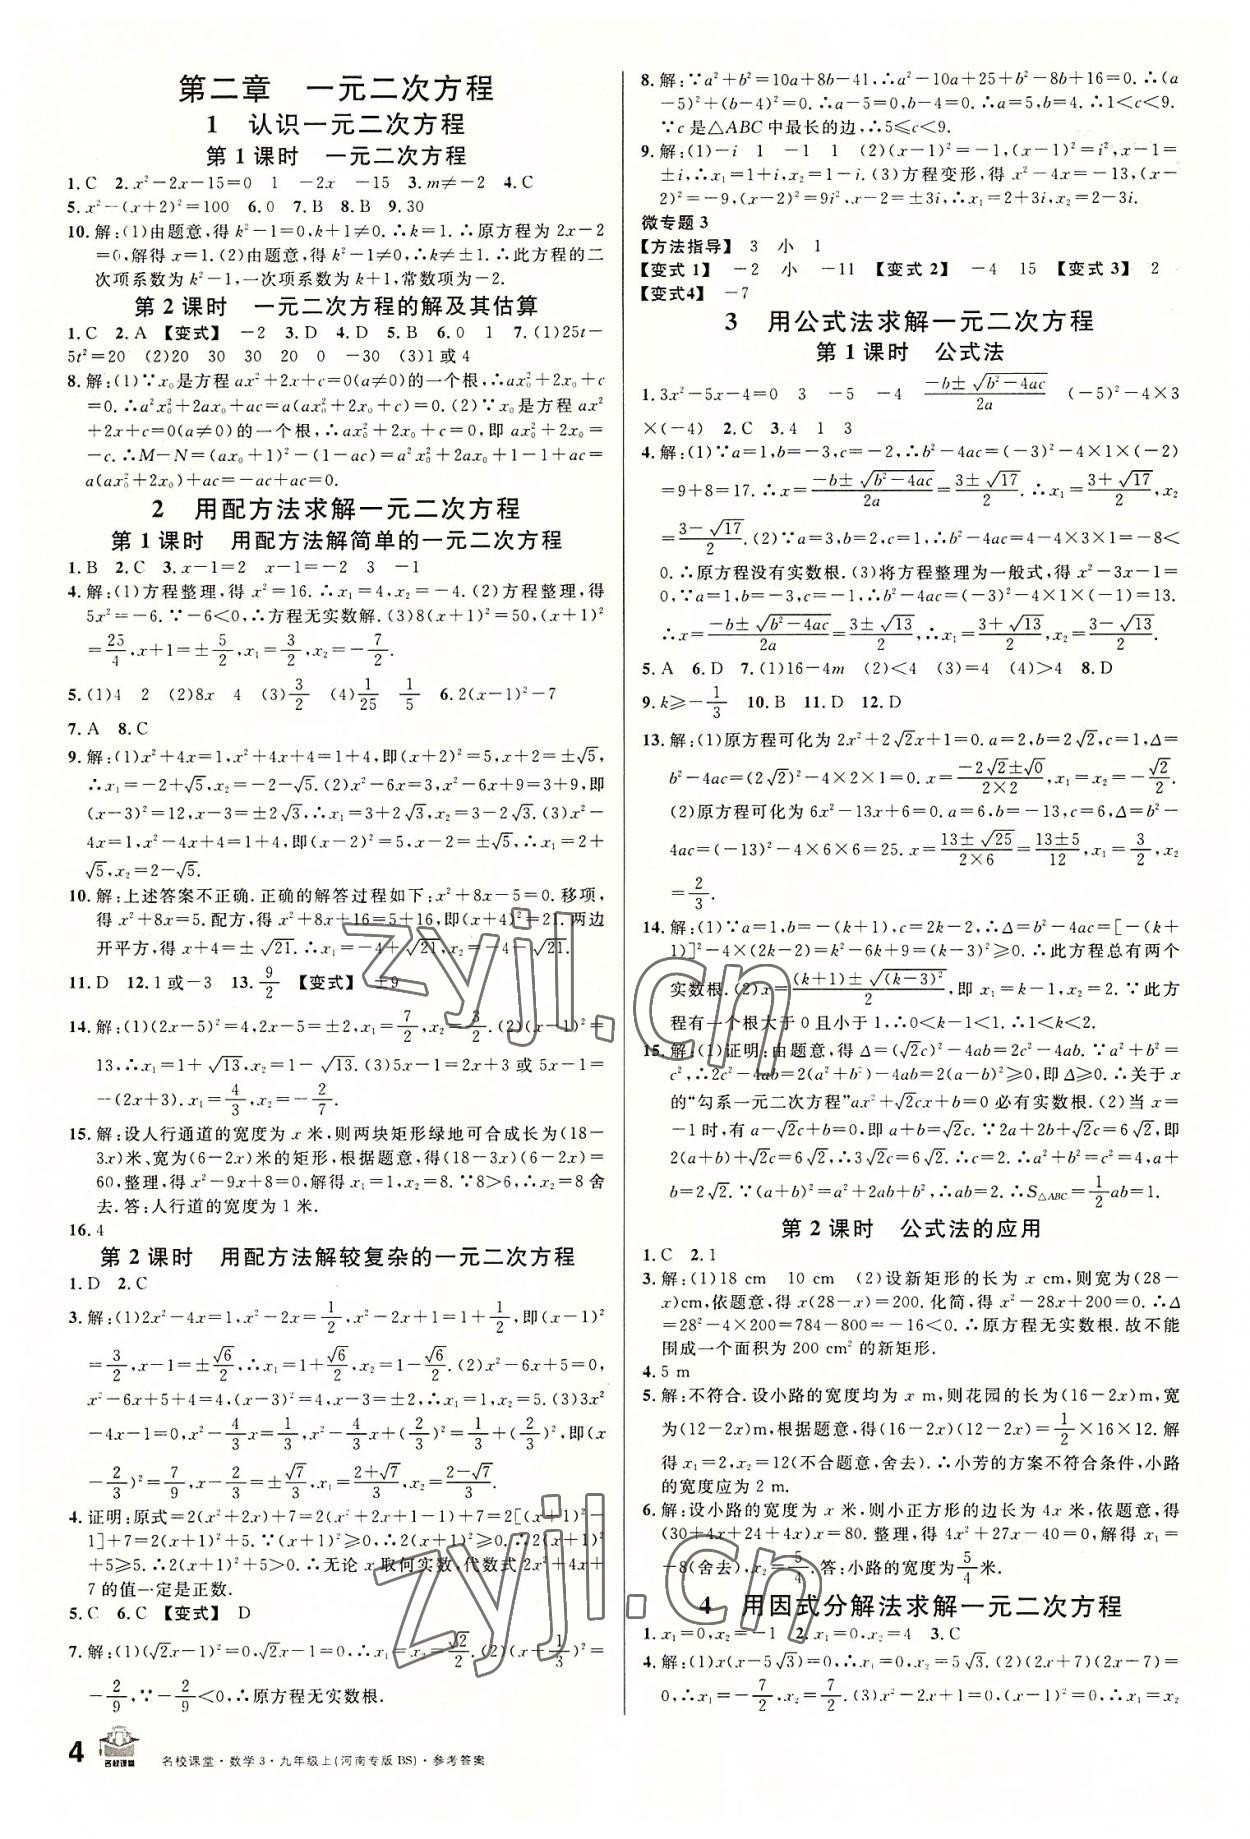 第二章 一元二次方程
1 认识一元二次方程
第1课时 一元二次方程
1.C 2.x²-2x-15=0 1 -2x -15 3.m≠-2 4.C
5.x²-(x+2)²=100 6.0 7.B 8.B 9.30
10.解:(1)由题意,得 k²-1=0,k+1≠0.∴k=1.∴原方程为 2x-2
=0,解得 x=1.(2)由题意,得 k²-1≠0,∴k≠±1.∴此方程的二
次项系数为 k²-1,一次项系数为 k+1,常数项为-2.
第2课时 一元二次方程的解及其估算
1.C 2.A 【变式】 -2 3.D 4.D 5.B 6.0 1 7.(1)25t-
5t²=20 (2)20 30 30 20 0 -30 (3)1或4
8.解:(1)∵x₀是方程 ax²+2x+c=0(a≠0)的一个根,∴ax₀²+2x₀+c
=0.∴a²x₀²+2ax₀+ac=a(ax₀²+2x₀+c)=0.(2)∵x₀是方程 ax²
+2x+c=0(a≠0)的一个根,∴ax₀²+2x₀+c=0,即 ax₀²+2x₀=
-c.∴M-N=(ax₀+1)²-(1-ac)=a²x₀²+2ax₀+1-1+ac=
a(ax₀²+2x₀)+ac=-ac+ac=0.
2 用配方法求解一元二次方程
第1课时 用配方法解简单的一元二次方程
1.B 2.C 3.x-1=2 x-1=-2 3 -1
4.解:(1)方程整理,得 x²=16.∴x₁=4,x₂=-4.(2)方程整理,得
5x²=-6.∵-6<0,∴方程无实数解.(3)8(x+1)²=50,(x+1)²
=25/4,x+1=±5/2,x₁=3/2,x₂=-7/2.
5.(1)4 2 (2)8x 4 (3)3/2 (4)1/25 1/5 6.2(x-1)²-7
7.A 8.C
9.解:(1)x²+4x=1,x²+4x+4=1+4,即(x+2)²=5,x+2=±√5,
∴x₁=-2+√5,x₂=-2-√5.(2)x²-6x=3,x²-6x+9=3+9,即
(x-3)²=12,x-3=±2√3,∴x₁=3+2√3,x₂=3-2√3.(3)x²-
4x=1,x²-4x+4=1+4,即(x-2)²=5,x-2=±√5,∴x₁=2+
√5,x₂=2-√5.
10.解:上述答案不正确.正确的解答过程如下:x²+8x-5=0.移项,
得 x²+8x=5.配方,得 x²+8x+16=5+16,即(x+4)²=21.两边
开平方,得 x+4=±√21.∴x₁=-4+√21,x₂=-4-√21.
11.D 12.1或-3 13.9/2 【变式】 ±9
14.解:(1)(2x-5)²=4,2x-5=±2,x₁=7/2,x₂=3/2.(2)(x-1)²=
13,∴x₁=1+√13,x₂=1-√13.(3)5x-1=2x+3 或 5x-1=
-(2x+3).x₁=4/3,x₂=-2/7.
15.解:设人行通道的宽度为 x 米,则两块矩形绿地可合成长为(18-
3x)米、宽为(6-2x)米的矩形,根据题意,得(18-3x)(6-2x)=
60,整理,得 x²-9x+8=0,解得 x₁=1,x₂=8.∵8>6,∴x=8舍
去.答:人行通道的宽度为1米.
16.4
第2课时 用配方法解较复杂的一元二次方程
1.D 2.C
3.解:(1)2x²-4x=1,x²-2x=1/2,x²-2x+1=1+1/2,即(x-1)²
=3/2,x-1=±√6/2,∴x₁=1+√6/2,x₂=1-√6/2.(2)x²-6x+5=0,
x²-6x+5+4=4,(x-3)²=4,x-3=±2,∴x₁=1,x₂=5.(3)3x²
-4x-1=0,x²-4/3x=1/3,x²-4/3x+(2/3)²=1/3+(2/3)²,即(x
-2/3)²=7/9,x-2/3=±√7/3,x₁=(2+√7)/3,x₂=(2-√7)/3.
4.证明:原式=2(x²+2x)+7=2(x²+2x+1-1)+7=2[(x+1)²-
1]+7=2(x+1)²+5.∵(x+1)²≥0,∴2(x+1)²≥0.∴2(x+1)²
+5≥5.∴2(x+1)²+5>0.∴无论 x 取何实数,代数式 2x²+4x+
7 的值一定是正数.
5.C 6.C 【变式】 D
7.解:(1)(√2x-1)²=0,√2x-1=0,∴x₁=x₂=√2/2.(2)(x+1/3)²=
-2/9,∵-2/9<0,∴原方程无实数根.
8.解:∵a²+b²=10a+8b-41,∴a²-10a+25+b²-8b+16=0.∴(a
-5)²+(b-4)²=0.∴a-5=0,b-4=0.∴a=5,b=4.∴1<c<9.
∵c 是△ABC 中最长的边,∴5≤c<9.
9.解:(1)-i 1 -1 1 (2)(x-1)²=-1,(x-1)²=i²,x-1=
±i,∴x₁=1+i,x₂=1-i.(3)方程变形,得 x²-4x=-13,(x-
2)²=-9,(x-2)²=9i²,x-2=±3i,∴x₁=2+3i,x₂=2-3i.
微专题3
【方法指导】 3 小 1
【变式1】 -2 小 -11 【变式2】 -4 15 【变式3】 2
【变式4】 -7
3 用公式法求解一元二次方程
第1课时 公式法
1.3x²-5x-4=0 3 -5 -4 (-b±√(b²-4ac))/2a (-5)²-4×3
×(-4) 2.C 3.4 1 3
4.解:(1)∵a=1,b=-3,c=-2,∴b²-4ac=(-3)²-4×1×(-2)
=9+8=17.∴x=(-b±√(b²-4ac))/2a=(3±√17)/2.∴x₁=(3+√17)/2,x₂
=(3-√17)/2.(2)∵a=3,b=2,c=1,∴b²-4ac=4-4×3×1=-8<
0.∴原方程没有实数根.(3)将方程整理为一般式,得 x²-3x-1=
0,∵a=1,b=-3,c=-1,∴b²-4ac=(-3)²-4×1×(-1)=13.
∴x=(-b±√(b²-4ac))/2a=(3±√13)/2,∴x₁=(3+√13)/2,x₂=(3-√13)/2.
5.A 6.D 7.(1)16-4m (2)<4 (3)=4 (4)>4 8.D
9.k≥-1/3 10.B 11.D 12.D
13.解:(1)原方程可化为 2x²+2√2x+1=0.a=2,b=2√2,c=1,Δ=
b²-4ac=(2√2)²-4×2×1=0.x=(-2√2±√0)/(2×2),x₁=x₂=-√2/2.
(2)原方程可化为 6x²-13x+6=0.a=6,b=-13,c=6,Δ=b²-
4ac=(-13)²-4×6×6=25.x=(13±√25)/(2×6)=(13±5)/12,x₁=3/2,x₂
=2/3.
14.解:(1)∵a=1,b=-(k+1),c=2k-2,∴Δ=b²-4ac=[-(k+
1)]²-4×(2k-2)=k²-6k+9=(k-3)²≥0.∴此方程总有两个
实数根.(2)x=((k+1)±√((k-3)²))/2,即 x₁=k-1,x₂=2.∵此方
程有一个根大于0且小于1,∴0<k-1<1.∴1<k<2.
15.解:(1)证明:由题意,得 Δ=(√2c)²-4ab=2c²-4ab.∵a²+b²=
c²,∴2c²-4ab=2(a²+b²)-4ab=2(a-b)²≥0,即 Δ≥0.∴关于 x
的“勾系一元二次方程”ax²+√2cx+b=0 必有实数根.(2)当 x=
-1时,有 a-√2c+b=0,即 a+b=√2c.∵2a+2b+√2c=6√2,即
2(a+b)+√2c=6√2,∴3√2c=6√2.∴c=2.∴a²+b²=c²=4,a+
b=2√2.∵(a+b)²=a²+2ab+b²,∴ab=2.∴S△ABC=1/2ab=1.
第2课时 公式法的应用
1.C 2.1
3.解:(1)18 cm 10 cm (2)设新矩形的长为 x cm,则宽为(28-
x)cm,依题意,得 x(28-x)=200.化简,得 x²-28x+200=0.∴Δ
=28²-4×200=784-800=-16<0.∴原方程无实数根.故不能
围成一个面积为 200 cm² 的新矩形.
4.5 m
5.解:不符合.设小路的宽度均为 x m,则花园的长为(16-2x)m,宽
为(12-2x)m,根据题意,得(16-2x)(12-2x)=1/2×16×12.解
得 x₁=2,x₂=12(不合题意,舍去).∴小芳的方案不符合条件,小路
的宽度应为 2 m.
6.解:设小路的宽度为 x 米,则小正方形的边长为 4x 米,依题意,得
(30+4x+24+4x)x=80.整理,得 4x²+27x-40=0,解得 x₁=
-8(舍去),x₂=5/4.答:小路的宽度为5/4米.
4 用因式分解法求解一元二次方程
1.x₁=0,x₂=-1 2.x₁=0,x₂=4 3.C
4.解:(1)x(x-5√3)=0,∴x₁=0,x₂=5√3.(2)(2x+7)(2x-7)
=0,∴x₁=-7/2,x₂=7/2.(3)x²-2x+1=0,(x-1)²=0,∴x₁=x₂
4 名校课堂 名校课堂·数学3·九年级上(河南专版 BS)·参考答案
zyjl.cn
zyjl.cn